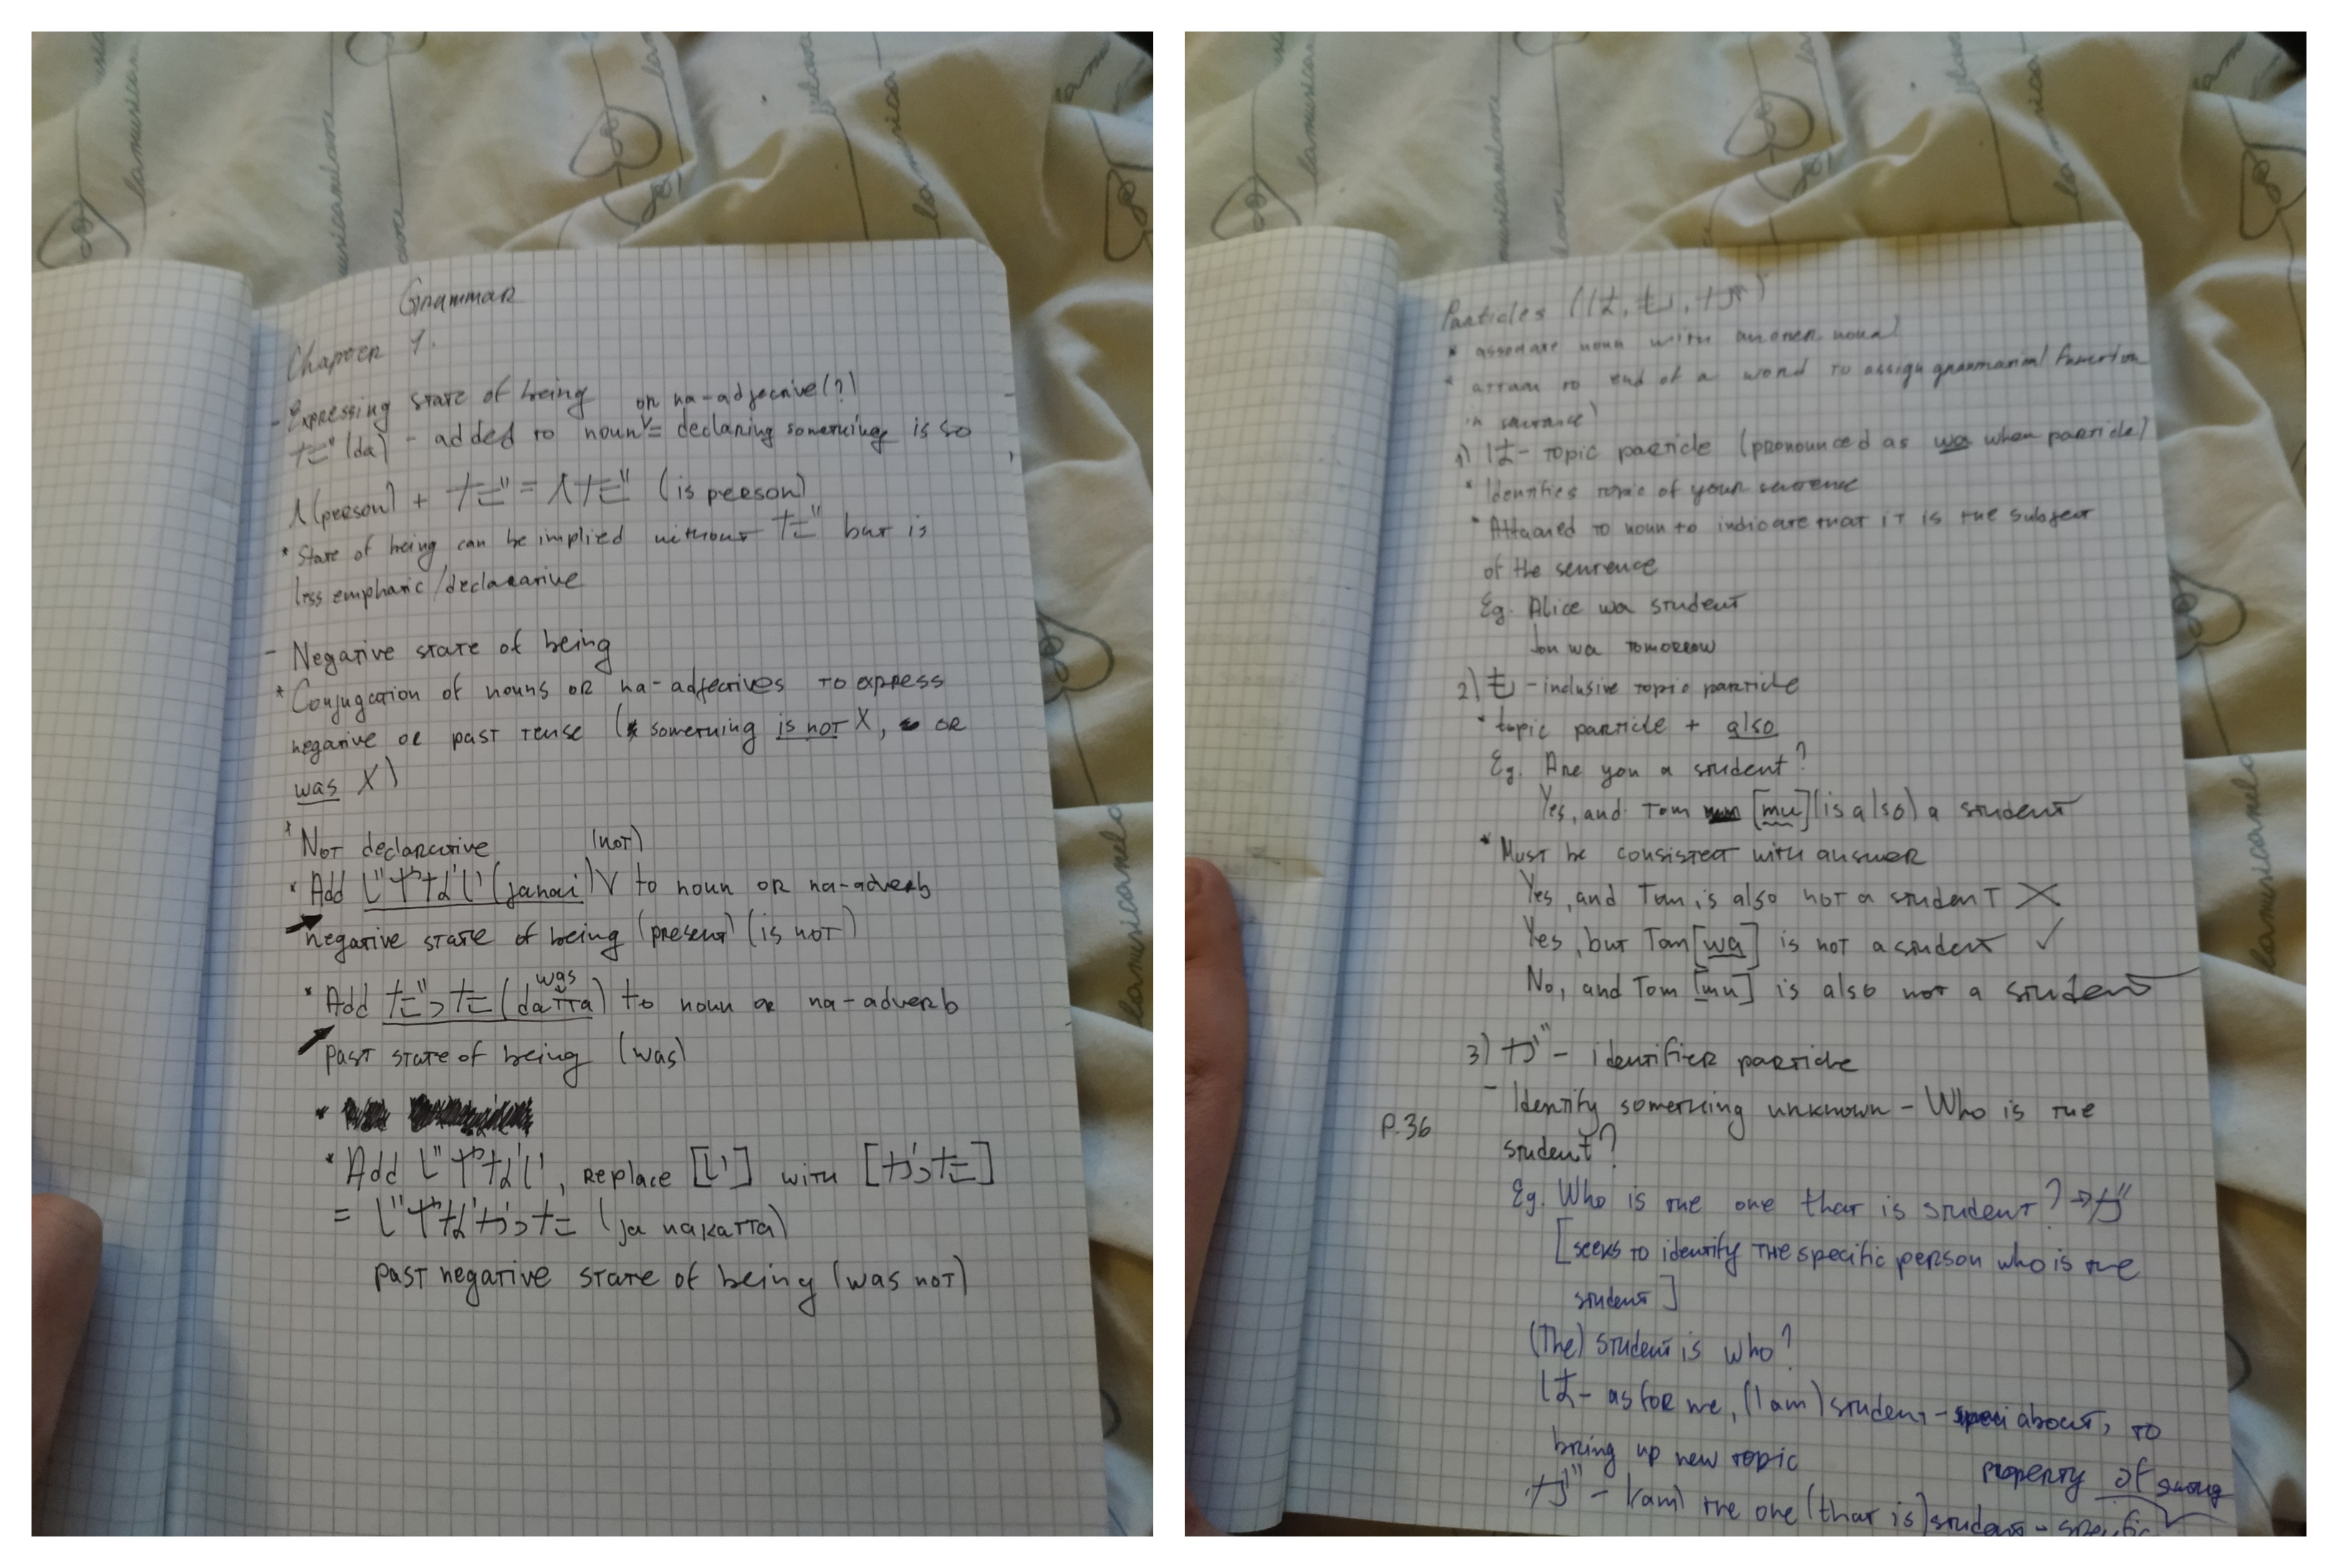 Grammar
Chapter 1.
- Expressing state of being
or na-adjective(?)
だ (da) - added to noun = declaring something is so
人(person) + だ = 人だ (is person)
* State of being can be implied without だ but is
less emphatic/declarative
- Negative state of being
* Conjugation of nouns or na-adjectives to express
negative or past tense (something is not X, or
was X)
* Not declarative
(not)
* Add じゃない (janai) V to noun or na-adverb
negative state of being (present) (is not)
was
* Add だった (datta) to noun or na-adverb
past state of being (was)
* Add じゃない, replace [い] with [かった]
= じゃなかった (ja nakatta)
past negative state of being (was not)
Particles (は, も, が)
* associate noun with another noun
* attach to end of a word to assign grammatial function
in sentence
1) は - topic particle (pronounced as wa when particle)
* Identifies topic of your sentence
* Attached to noun to indicate that it is the subject
of the sentence
Eg. Alice wa student
Jon wa tomorrow
2) も - inclusive topic particle
* topic particle + also
Eg. Are you a student?
Yes, and Tom [mu] (is also) a student
* Must be consistent with answer
Yes, and Tom is also not a student X
Yes, but Tom [wa] is not a student ✓
No, and Tom [mu] is also not a student
3) が - identifier particle
- Identify something unknown - Who is the
P.36
student?
Eg. Who is the one that is student? → が
[seeks to identify the specific person who is the
student]
(The) student is who?
は - as for me, (I am) student - about, to
bring up new topic
property of
が - I (am) the one (that is) student - specific
lamusicanelcore
lamusica
lamusicanelo